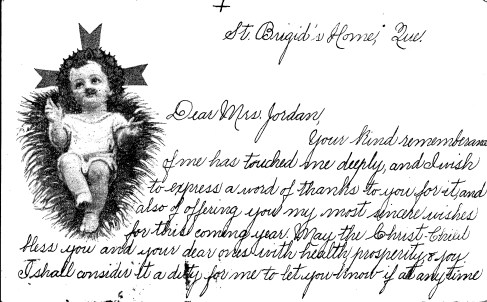 St. Brigid's Home, Que.
Dear Mrs. Jordan,
Your kind rememberance
of me has touched me deeply, and I wish
to express a word of thanks to you for it, and
also of offering you my most sincere wishes
for this coming year. May the Christ Child
bless you and your dear ones with health, prosperity & joy.
I shall consider it a duty for me to let you know if at any time